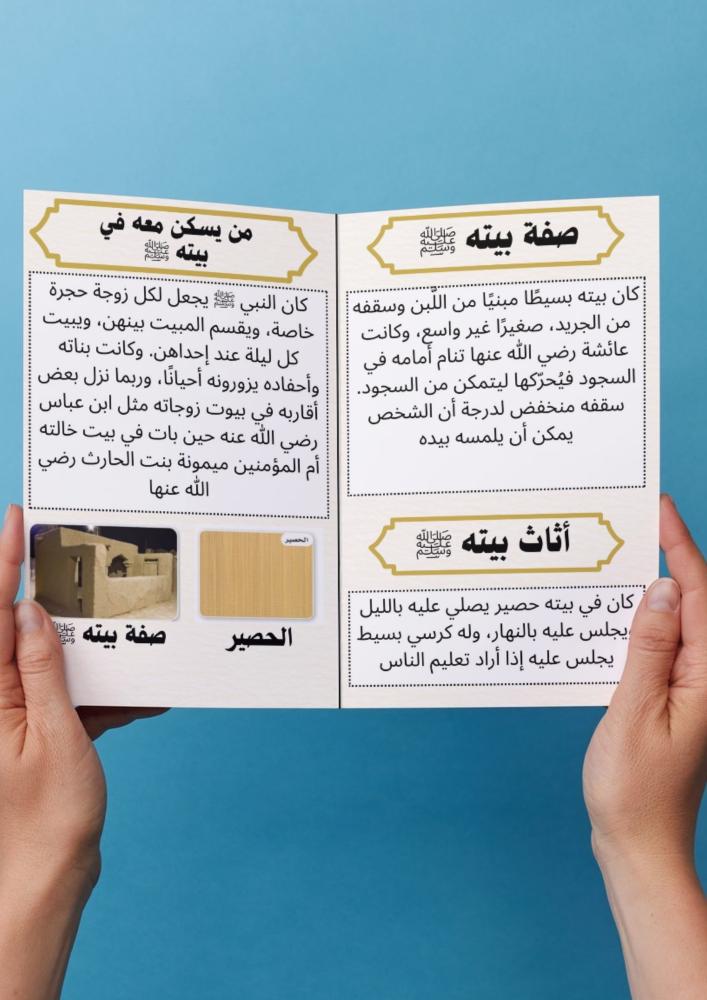 صفة بيته ﷺ
كان بيته بسيطًا مبنيًا من اللَّبن وسقفه
من الجريد، صغيرًا غير واسع، وكانت
عائشة رضي الله عنها تنام أمامه في
السجود فيُحرّكها ليتمكن من السجود.
سقفه منخفض لدرجة أن الشخص
يمكن أن يلمسه بيده
أثاث بيته ﷺ
كان في بيته حصير يصلي عليه بالليل
ويجلس عليه بالنهار، وله كرسي بسيط
يجلس عليه إذا أراد تعليم الناس
من يسكن معه في
بيته ﷺ
كان النبي ﷺ يجعل لكل زوجة حجرة
خاصة، ويقسم المبيت بينهن، ويبيت
كل ليلة عند إحداهن. وكانت بناته
وأحفاده يزورونه أحيانًا، وربما نزل بعض
أقاربه في بيوت زوجاته مثل ابن عباس
رضي الله عنه حين بات في بيت خالته
أم المؤمنين ميمونة بنت الحارث رضي
الله عنها
الحصير
الحصير
صفة بيته ﷺ